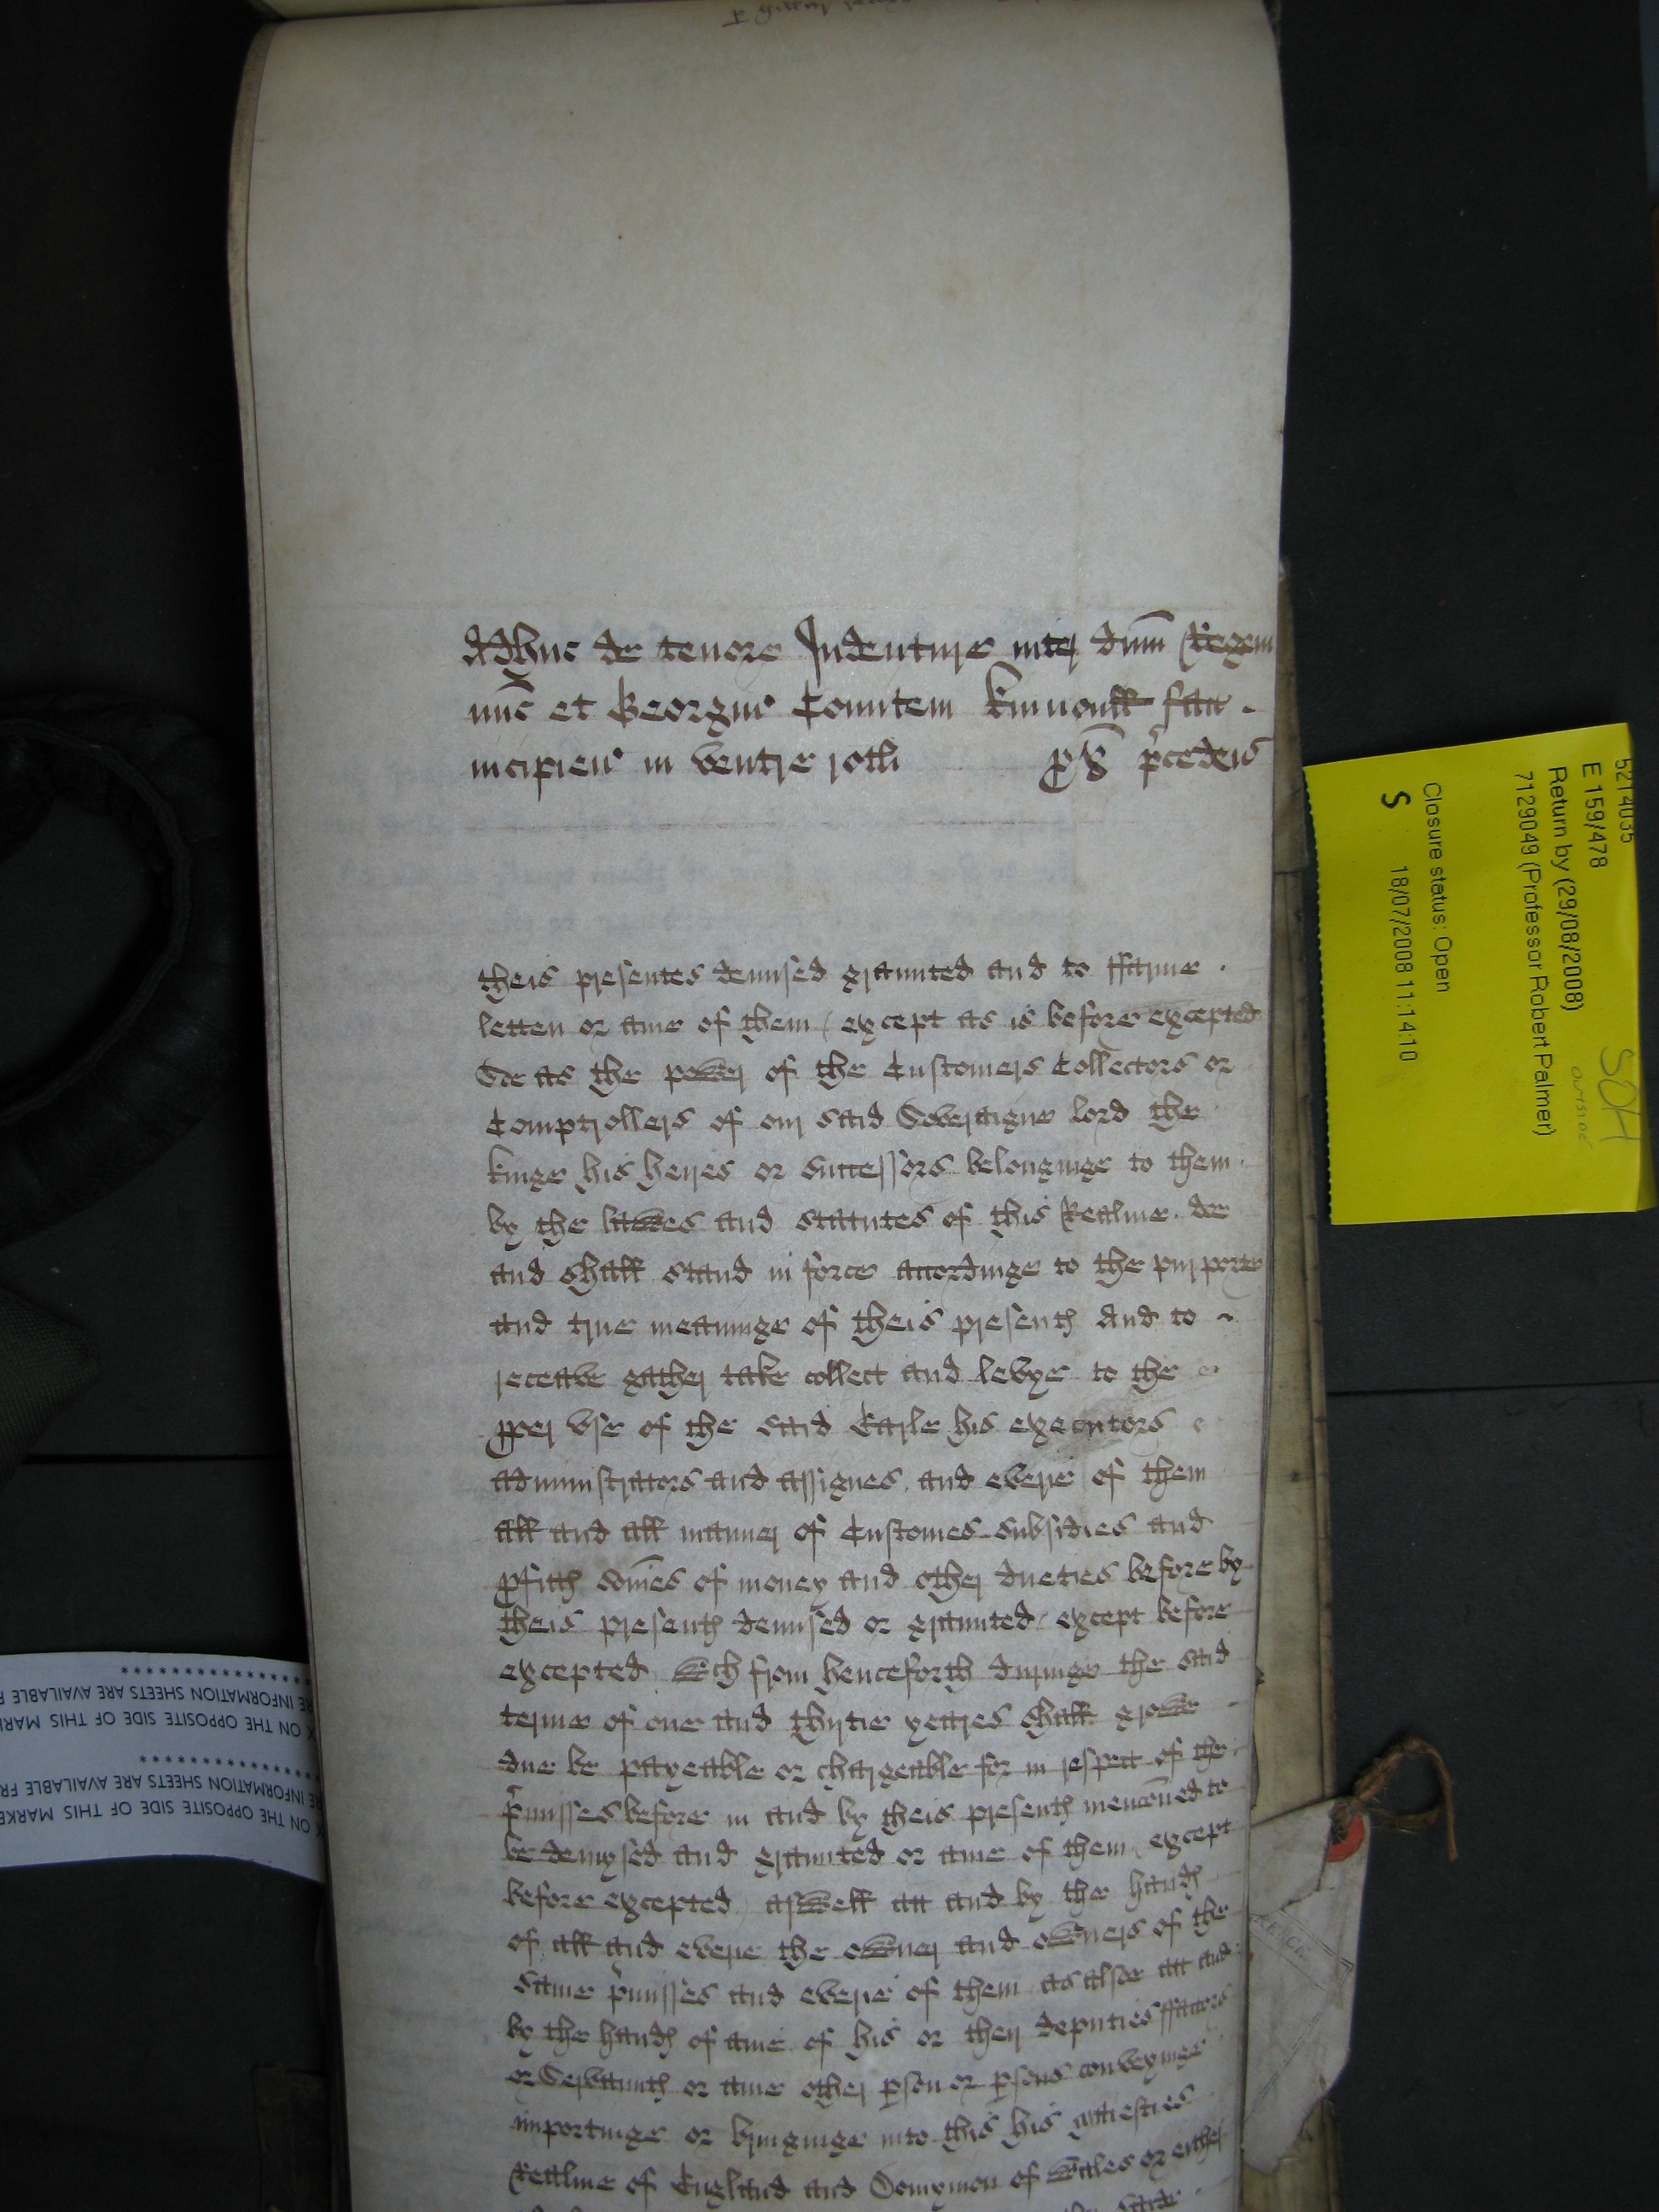 Adhuc de tenore Indenture inter dn̄m Regem
nūc et Georgiū Comitem Kinnoull fact
incipien̄ in ventre rotli p̱x̄ p̄cedens
theis presentes demised graunted and to ffarme
letten or anie of them (except as is before excepted
Soe as the power of the Customers Collectors or
Comptrollers of our said Soveraigne lord the
kinge his heires or successors belonginge to them
by the lawes and statutes of this Realme doe
and shall stand in force accordinge to the purporte
and true meaninge of theis presentꝭ And to
receave gather take collect and levye to the
ꝓper vse of the said Earle his executors
administrators and assignes and everie of them
all and all manner of Customes Subsidies and
ꝓfittꝭ som̄es of money and other dueties before by
theis presentꝭ demised or graunted except before
excepted wch from henceforth duringe the said
terme of one and thirtie yeares shall growe
due be payeable or chargeable for in respect of the
p̄misses before in and by theis presentꝭ menc̄oned to
be demysed and graunted or anie of them except
before excepted aswell att and by the handꝭ
of all and everie the owner and owners of the
same p̄misses and everie of them as alsoe att and
by the handꝭ of anie of his or their deputies ffactors
or Servauntꝭ or anie other ꝑson or ꝑsons conveyinge
importinge or bringinge into this his maiesties
Realme of England and Domynion of Wales or either
5214035
E 159/478
Return by (29/08/2008)
7129049 (Professor Robert Palmer)
Closure status: Open
S 18/07/2008 11:14:10
SOH
OUTSIDE
RE INFORMATION SHEETS ARE AVAILABLE
K ON THE OPPOSITE SIDE OF THIS MARK
****************
RE INFORMATION SHEETS ARE AVAILABLE FR
ON THE OPPOSITE SIDE OF THIS MARKE
****************